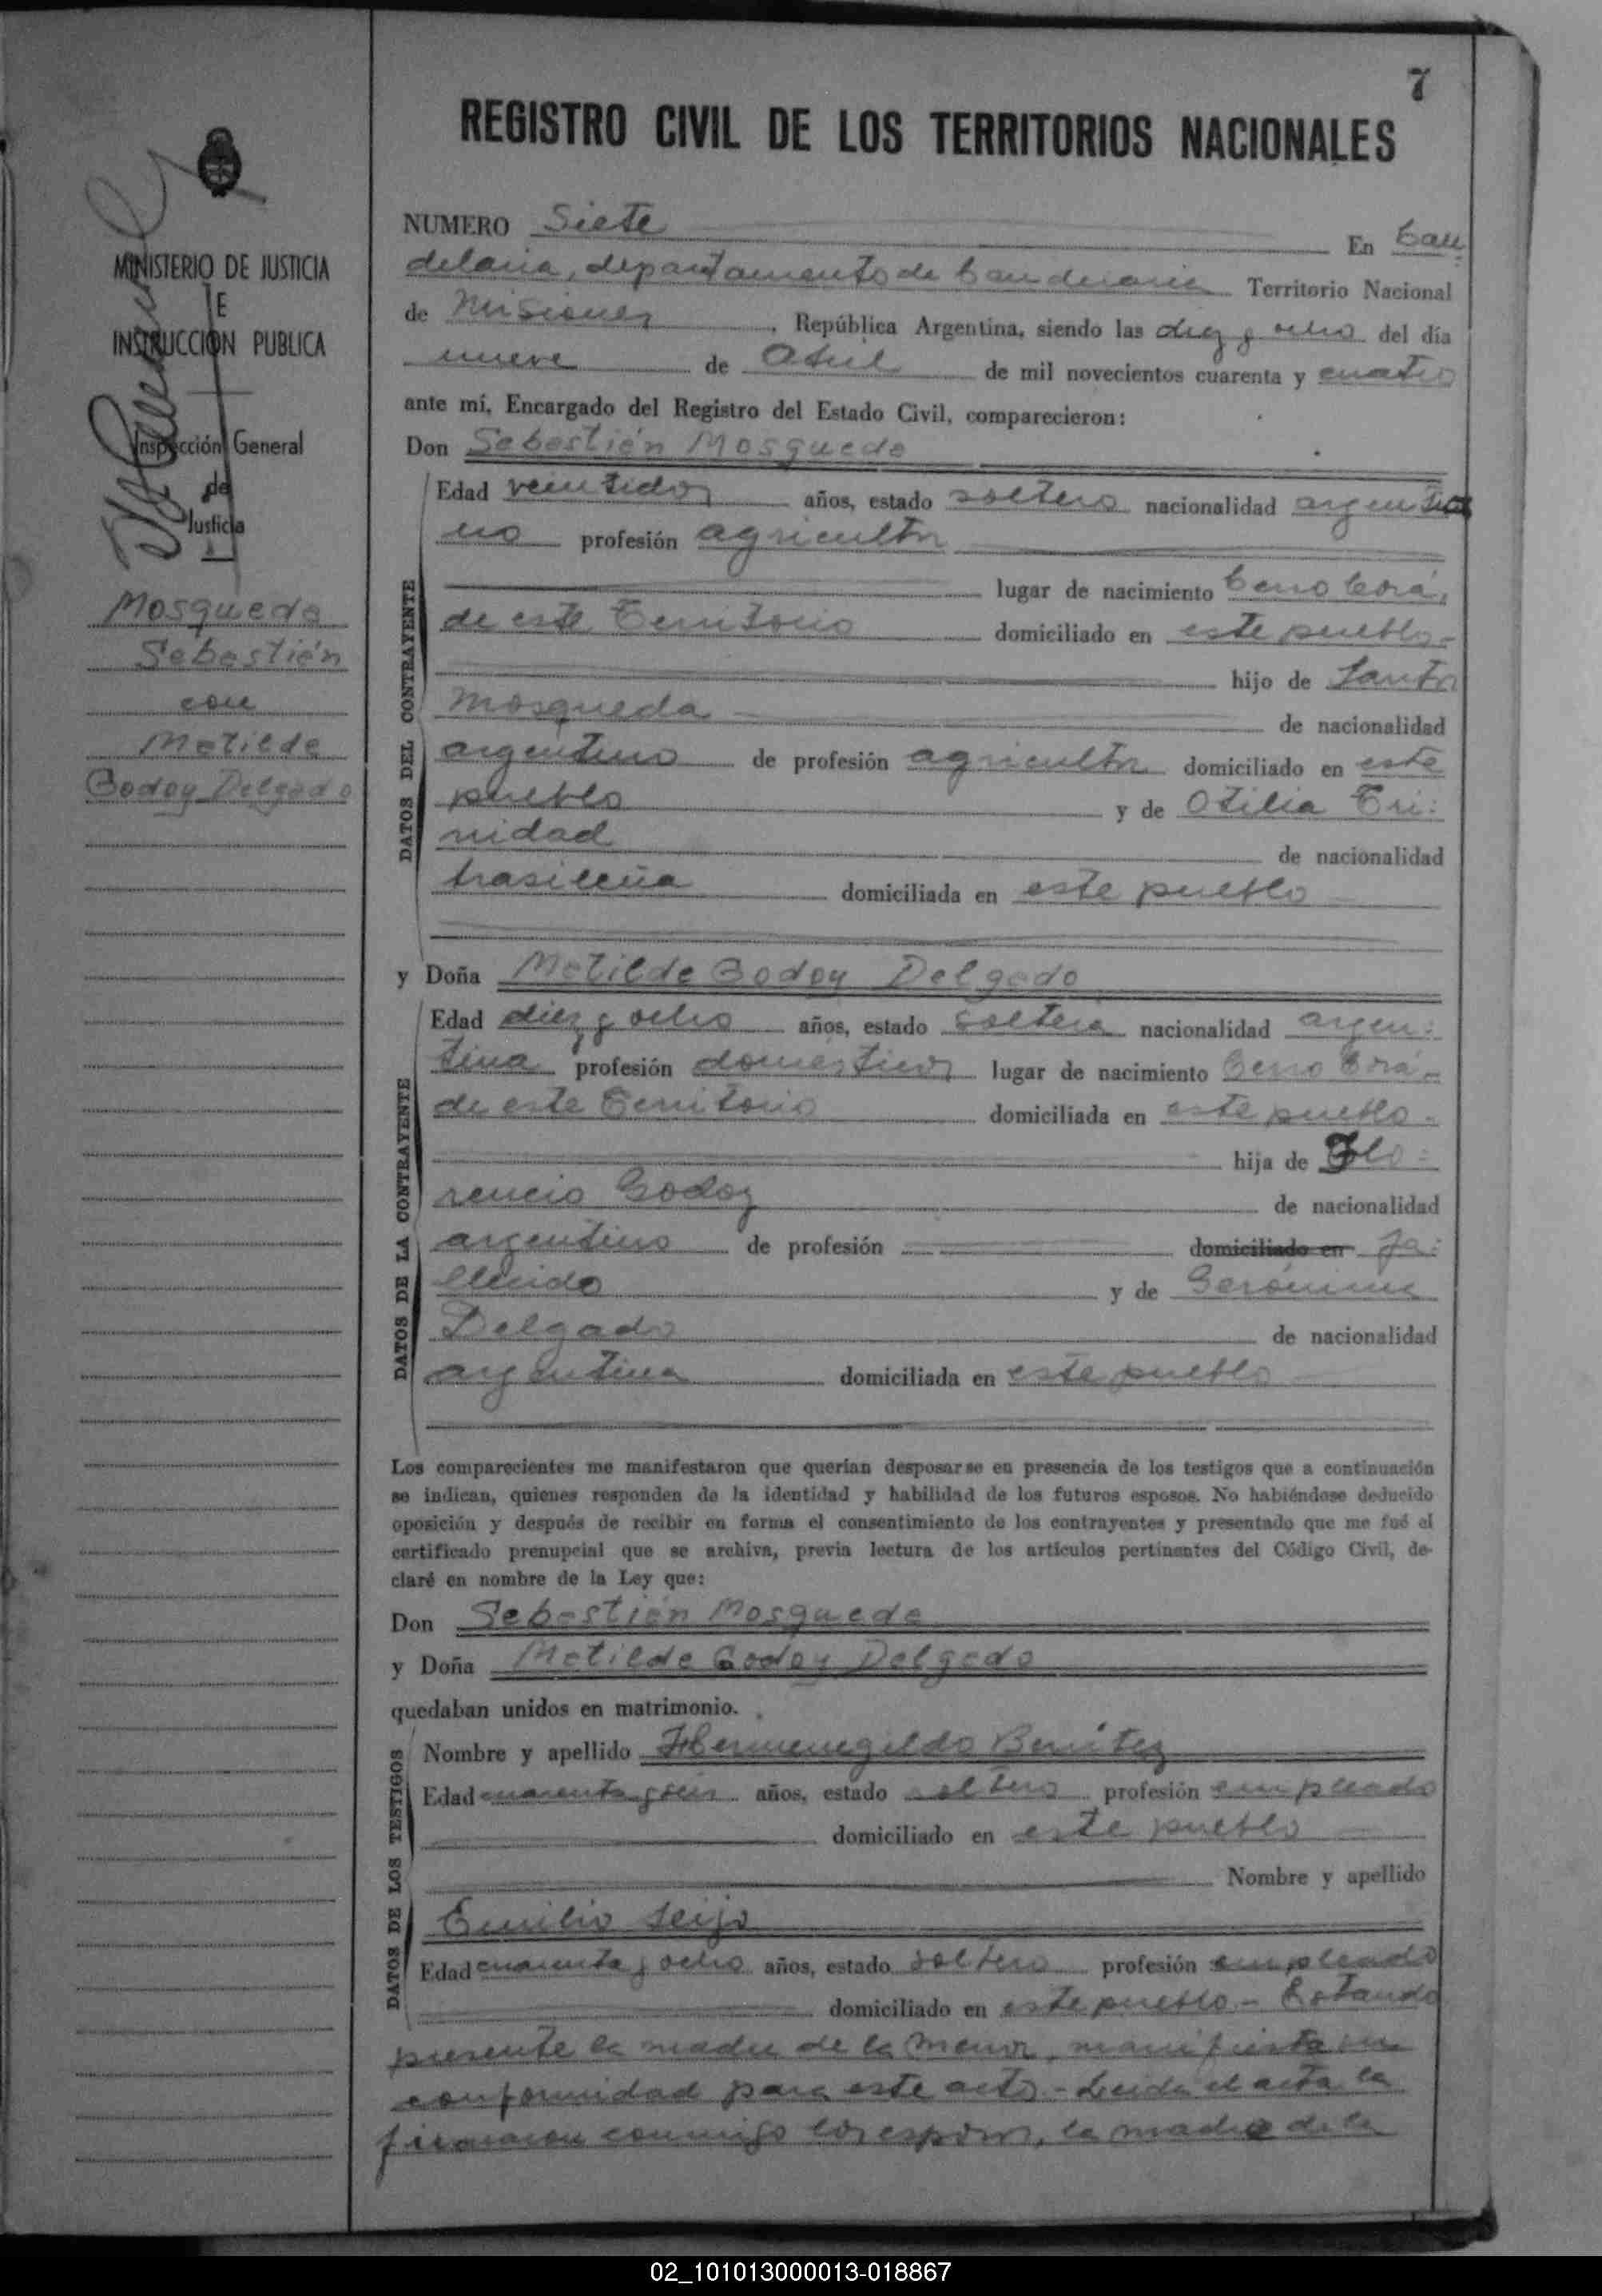 7
REGISTRO CIVIL DE LOS TERRITORIOS NACIONALES
MINISTERIO DE JUSTICIA
E
INSTRUCCIÓN PUBLICA
Inspección General
de
Justicia
Mosqueda
Sebastián
con
Matilde
Godoy Delgado
NUMERO Siete En Can
delaria, departamento de Candelaria Territorio Nacional
de Misiones, República Argentina, siendo las diez y ocho del día
nueve de Abril de mil novecientos cuarenta y cuatro
ante mí, Encargado del Registro del Estado Civil, comparecieron:
Don Sebastián Mosqueda
DATOS DEL CONTRAYENTE
Edad veintidos años, estado soltero nacionalidad argenti
no profesión agricultor
lugar de nacimiento Cerro Corá,
de este Territorio domiciliado en este pueblo-
hijo de Santos
Mosqueda de nacionalidad
argentino de profesión agricultor domiciliado en este
pueblo y de Otilia Tri:
nidad de nacionalidad
brasileña domiciliada en este pueblo
y Doña Matilde Godoy Delgado
DATOS DE LA CONTRAYENTE
Edad diez y ocho años, estado soltera nacionalidad argen:
tina profesión domésticos lugar de nacimiento Cerro Corá-
de este Territorio domiciliada en este pueblo-
hija de Flo=
rencio Godoy de nacionalidad
argentino de profesión domiciliado en fa:
llecido y de Gerónima
Delgado de nacionalidad
argentina domiciliada en este pueblo
Los comparecientes me manifestaron que querían desposarse en presencia de los testigos que a continuación
se indican, quienes responden de la identidad y habilidad de los futuros esposos. No habiéndose deducido
oposición y después de recibir en forma el consentimiento de los contrayentes y presentado que me fué el
certificado prenupcial que se archiva, previa lectura de los artículos pertinentes del Código Civil, de-
claré en nombre de la Ley que:
Don Sebastián Mosqueda
y Doña Matilde Godoy Delgado
quedaban unidos en matrimonio.
DATOS DE LOS TESTIGOS
Nombre y apellido Hermenegildo Benítez
Edad cuarenta y seis años, estado soltero profesión empleado
domiciliado en este pueblo
Nombre y apellido
Emilio Seijo
Edad cuarenta y ocho años, estado soltero profesión empleado
domiciliado en este pueblo- Estando
presente la madre de la menor, manifiesta su
conformidad para este acto- Leida el acta la
firmaron conmigo los esposos, la madre de la
02_101013000013-018867